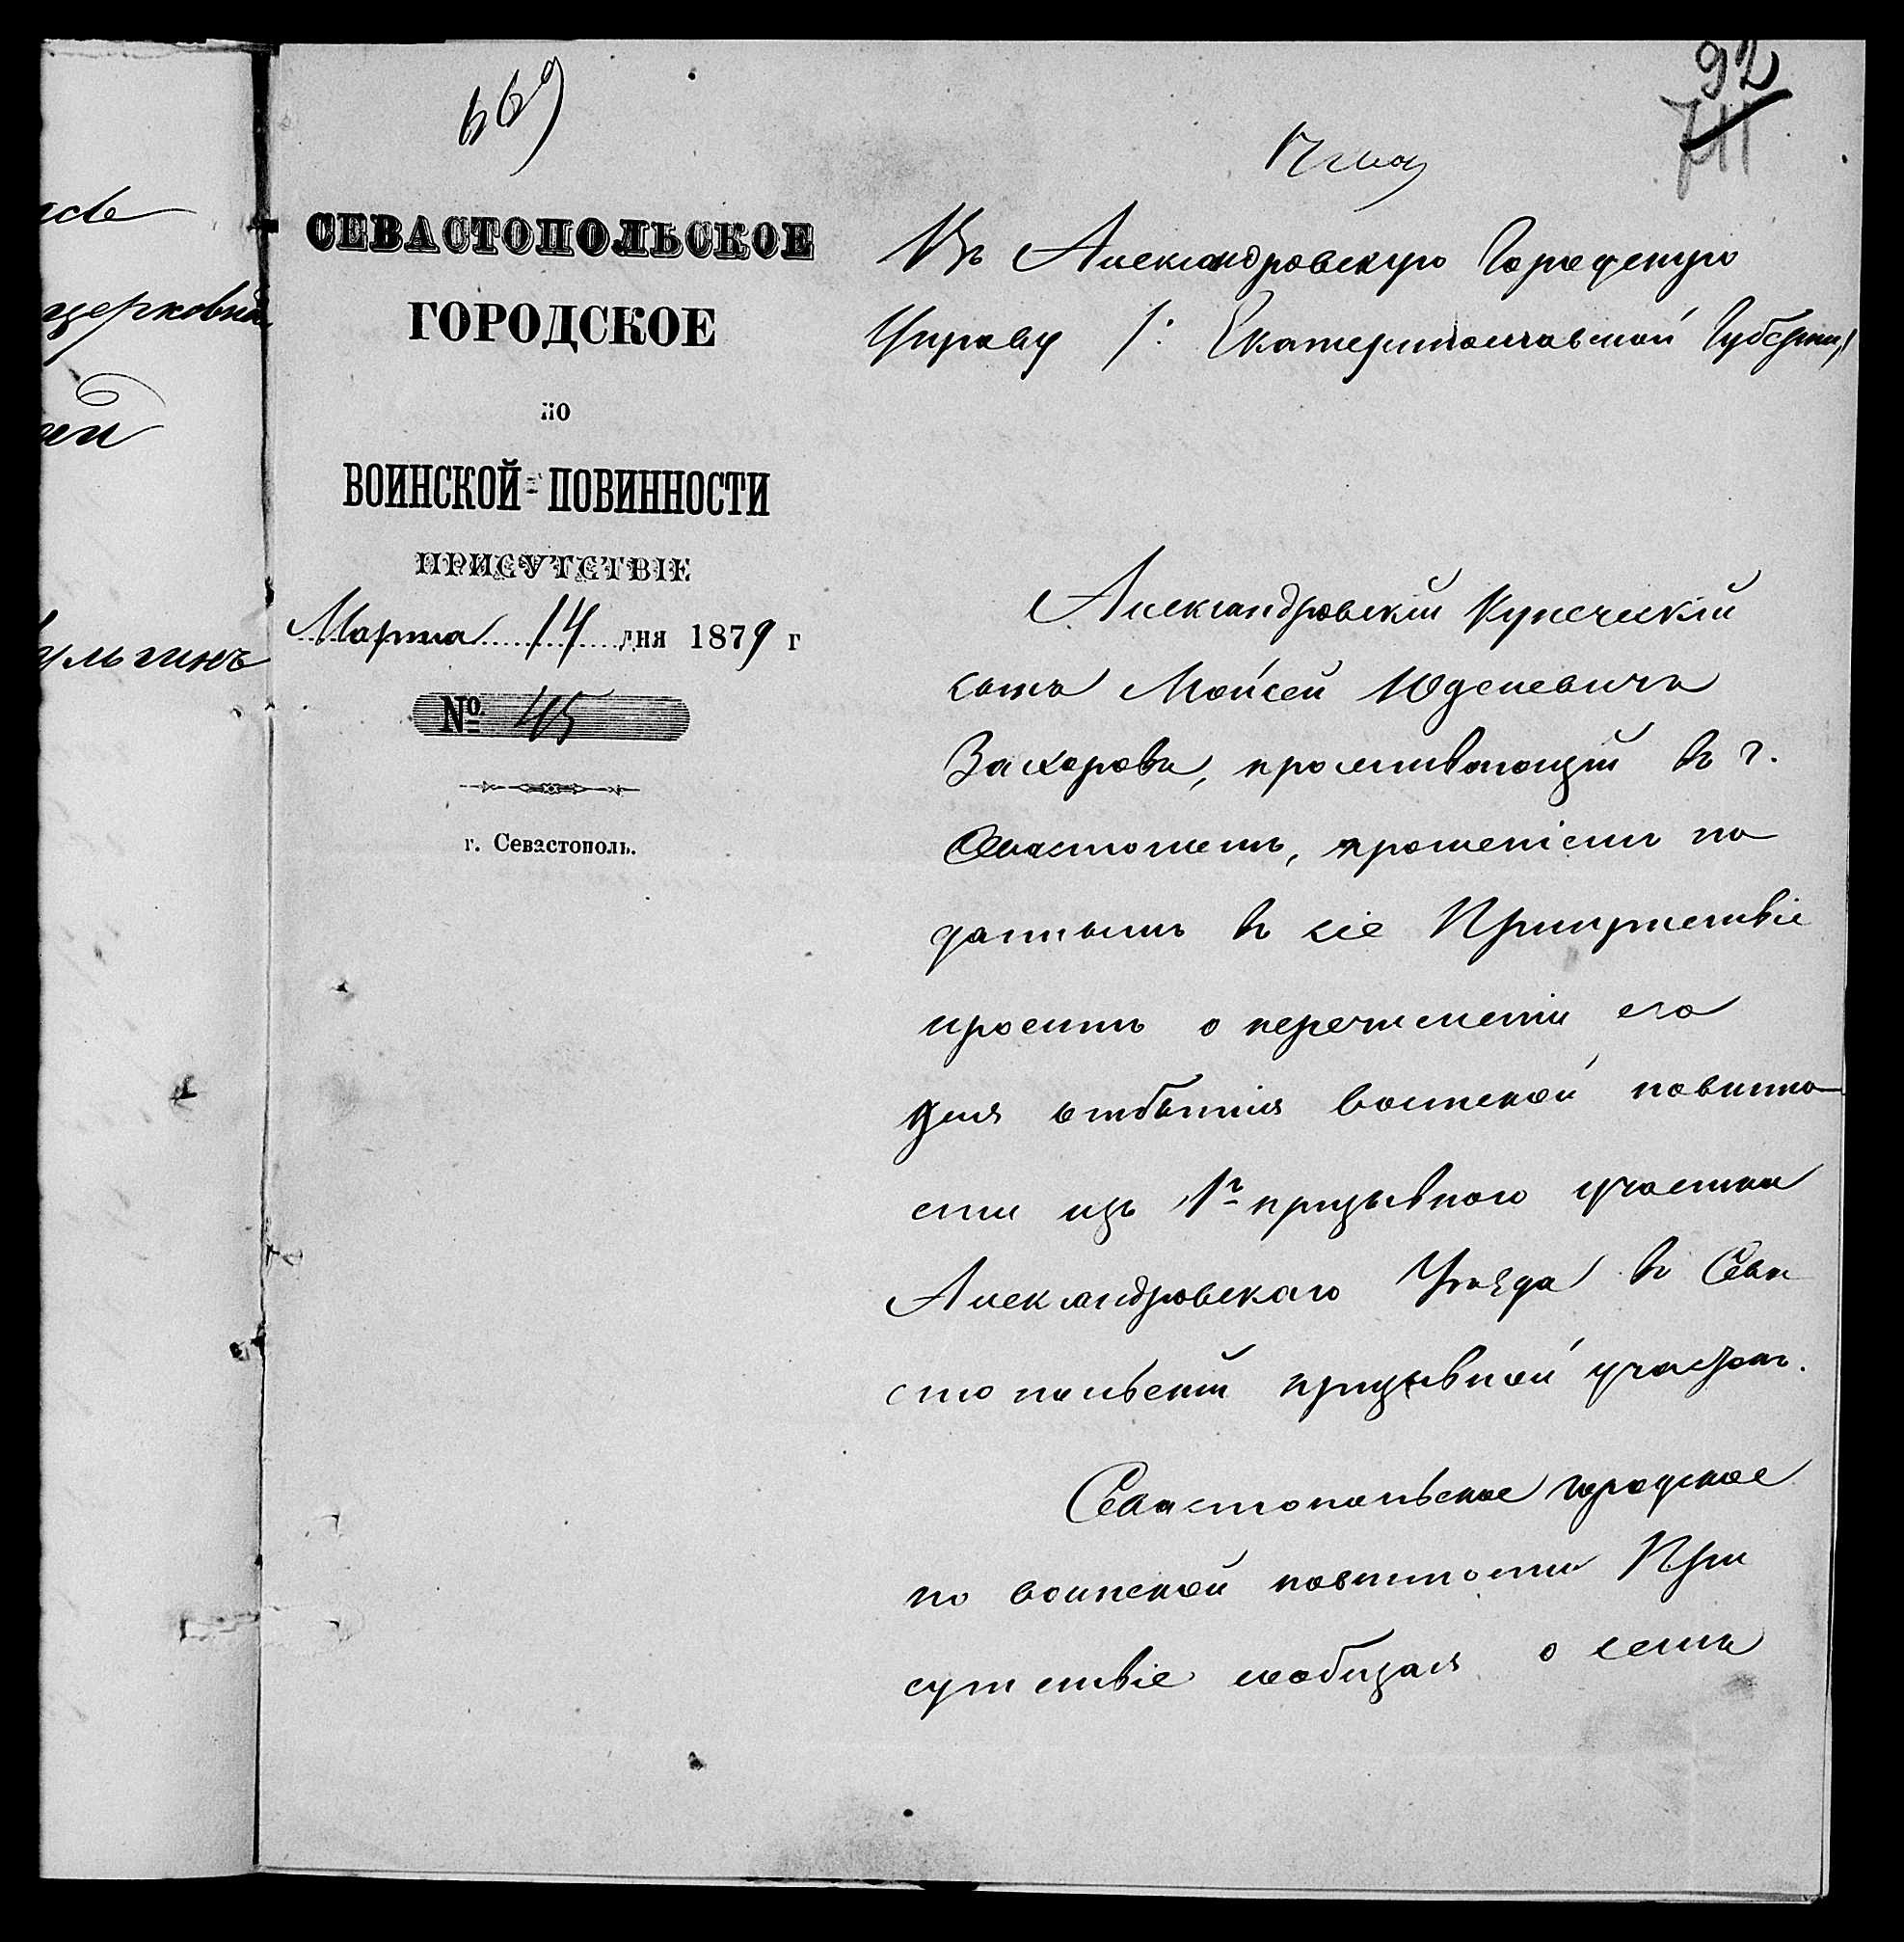 асть
церковна
ей
ульгинъ
669
92
СЕВАСТОПОЛЬСКОЕ
ГОРОДСКОЕ
по
ВОИНСКОЙ-ПОВИННОСТИ
ПРИСУТСТВІЕ
Марта 14 дня 1879 г
№ 45
г. Севастополь.
Въ Александровскую Городскую
Управу /: Екатеринославской Губерніи /
Александровскій Купеческій
сынъ Мойсей Юделевичъ
Захаровъ, проживающій въ г.
Севастополѣ, прошеніемъ по
даннымъ въ сіе Присутствіе
проситъ о перечисленіи его
для отбытія воинской повинно
сти изъ 1го призывного участка
Александровскаго Уѣзда въ Сева
стопольскій призывной участокъ.
Севастопольское городское
по воинской повинности При
сутствіе сообщая о семъ